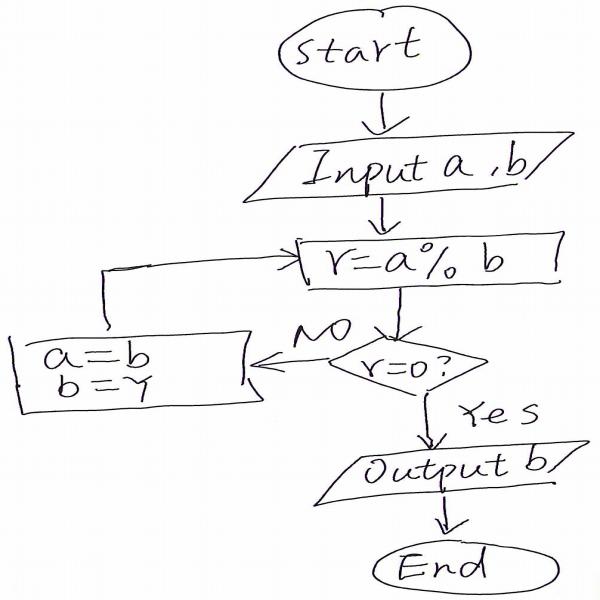 Start
Input a , b
r=a% b
NO
a=b
b=r
r=0?
Yes
Output b
End